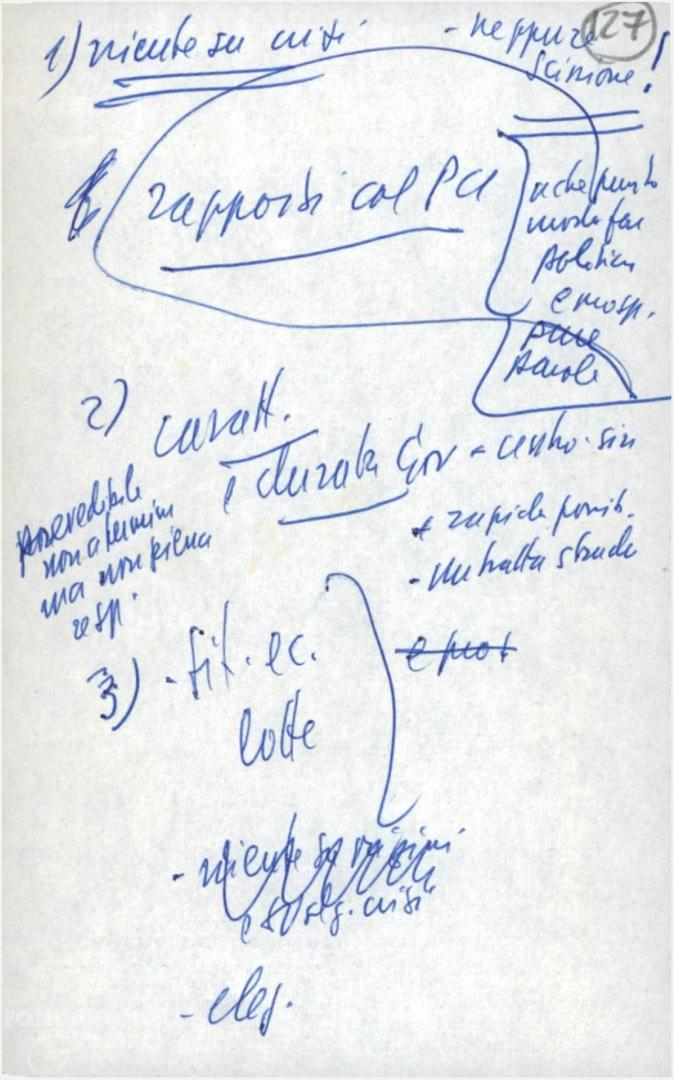 127
1) niente su crisi
- neppure
scissione!
rapporti col PCI
a che punto
modo far
politica
e prosp.
pure
parole
2) caratt.
e durata Gov - centro-sin
prevedibile
non a termine
ma non piena
resp.
+ rapida possib.
- un'altra strada
3) - sit. ec.
lotte
- niente su
e svolg. crisi
- elez.